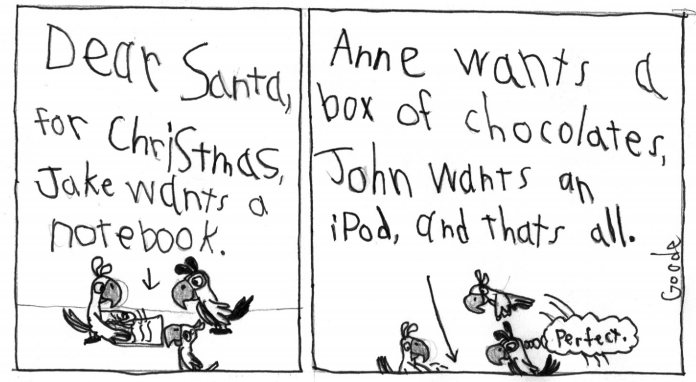 Dear Santa,
for Christmas,
Jake wants a
notebook.
Anne wants a
box of chocolates,
John wants an
iPod, and thats all.
Perfect.